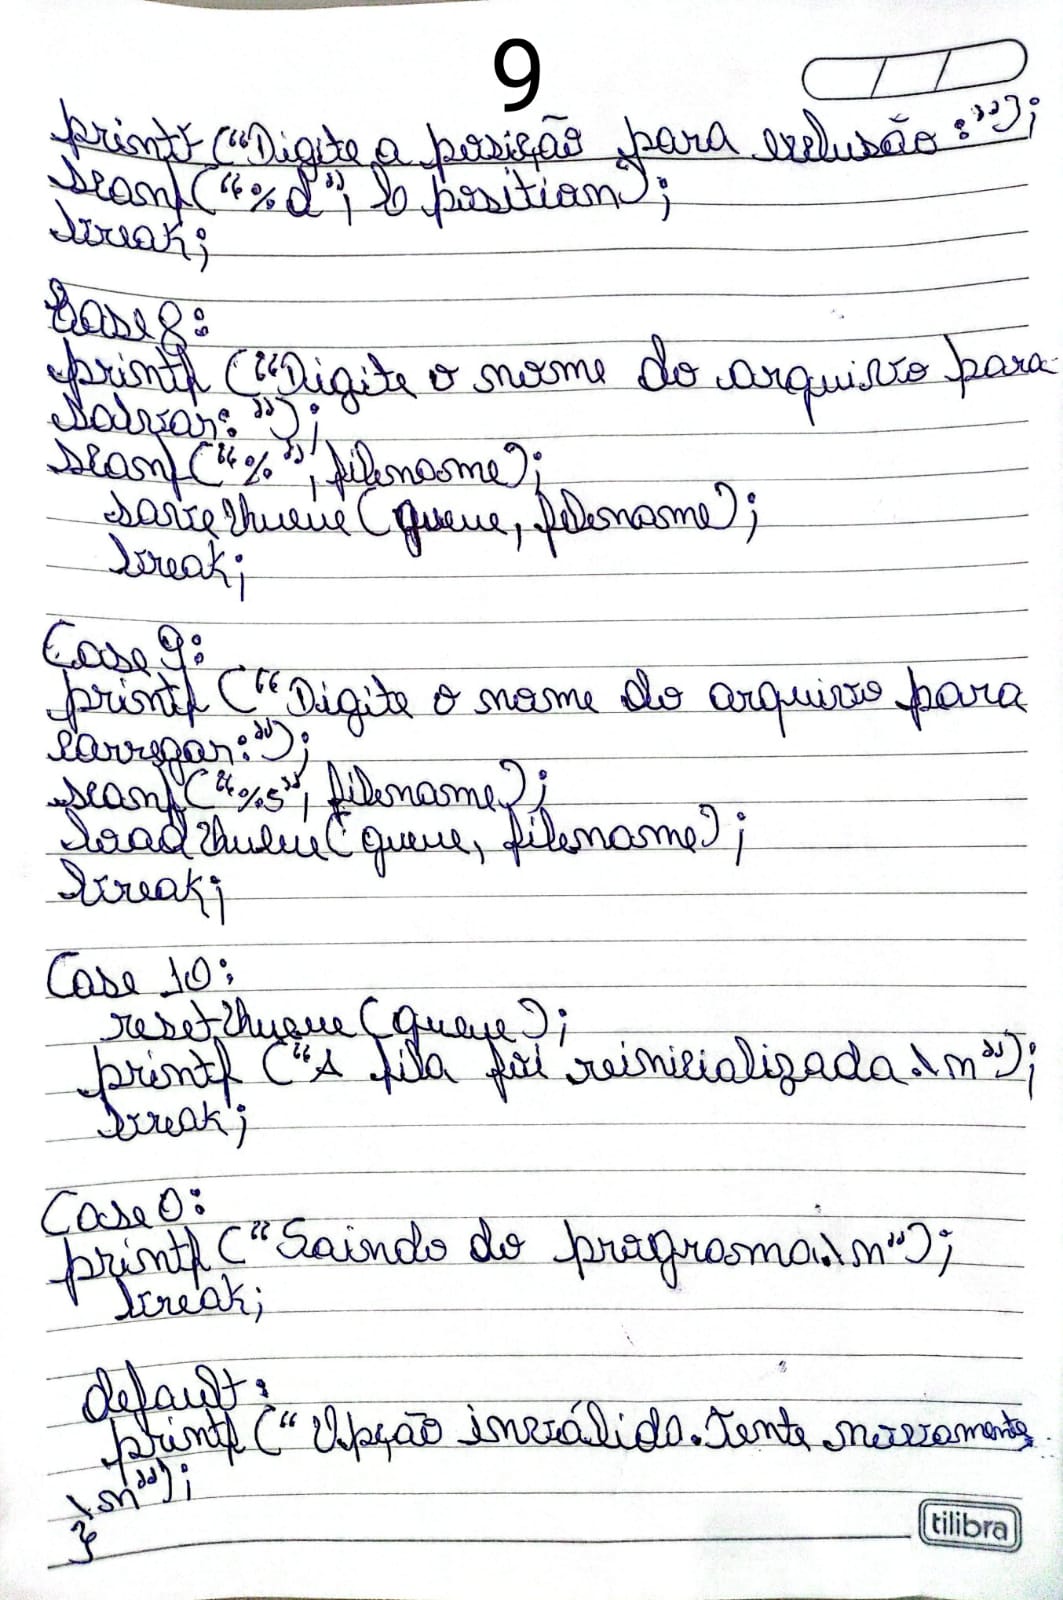 9
printf ("Digite a posição para exclusão:");
scanf("%d", & position);
break;
Case 8:
printf ("Digite o nome do arquivo para
salvar: ");
scanf("%", filename);
save Queue (queue, filename);
break;
Case 9:
printf ("Digite o nome do arquivo para
carregar:");
scanf("%s", filename);
load Queue (queue, filename);
break;
Case 10:
reset Queue (queue);
printf ("A fila foi reinicializada.\n");
break;
Case 0:
printf ("Saindo do programa.\n");
break;
default:
printf ("Opção inválida. Tente novamente
\n");
}
tilibra